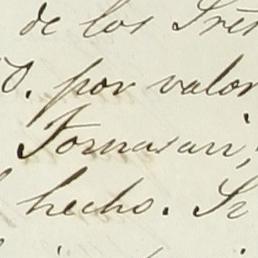 de los Sres
por valor
Tomasari,
hecho. Sr